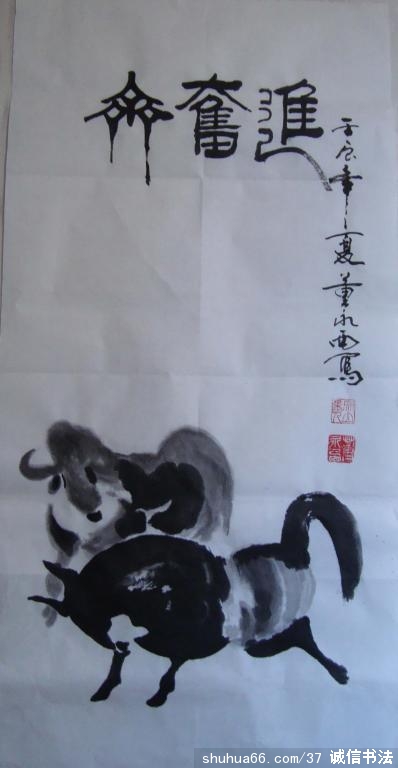 齊奮進
壬辰年之夏董永寫
shuhua66.com/37 诚信书法